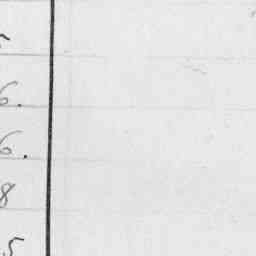 6.
6.
8
5